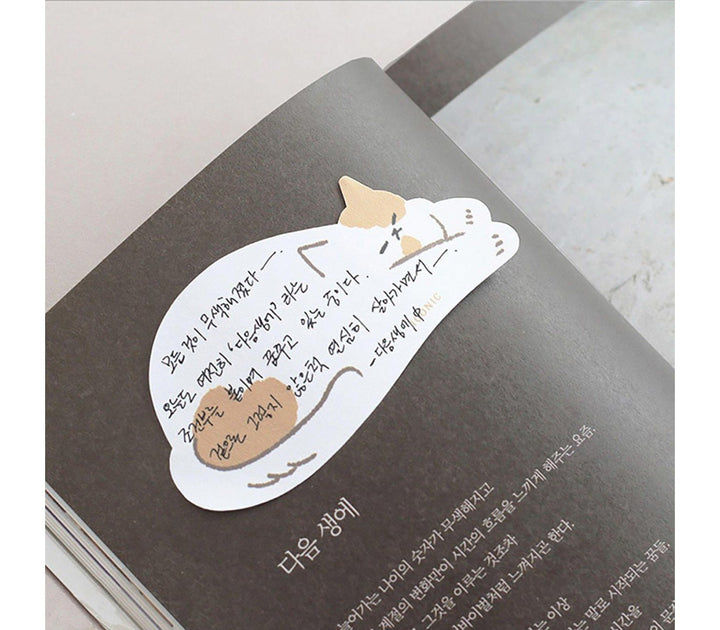 모든 것이 무색해졌다 —.
오늘도 여전히 '다음생에' 라는
조건부를 붙이며 꿈꾸고 있는 중이다.
겉으론 그렇지 않은척 열심히 살아가면서 —.
- 다음생에 中
ICONIC
다음 생에
늘어가는 나이의 숫자가 무색해지고
계절의 변화만이 시간의 흐름을 느끼게 해주는 요즘.
그것을 이루는 것조차
처럼 느껴지곤 한다.
는 이상
는 말로 시작되는 꿈들.
시간을